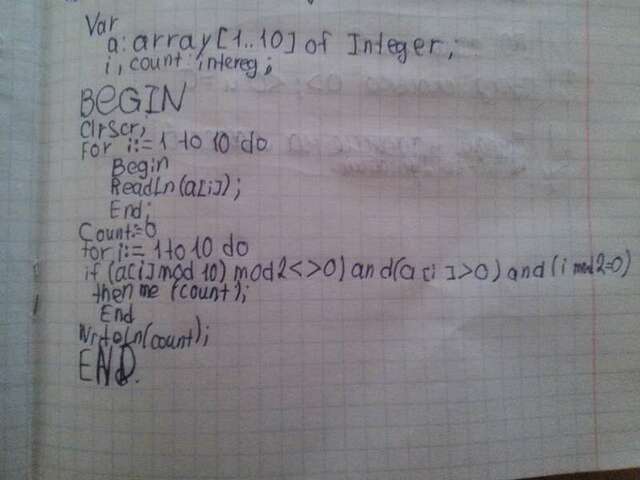 Var
a: array[1..10] of Integer;
i, count: intereg;
BEGIN
ClrScr;
For i:= 1 to 10 do
Begin
ReadLn(a[i]);
End;
Count:=0
for i:= 1 to 10 do
if (a[i] mod 10) mod 2<>0) and (a[i]>0) and (i mod 2=0)
then me (count);
End
WriteLn(count);
END.